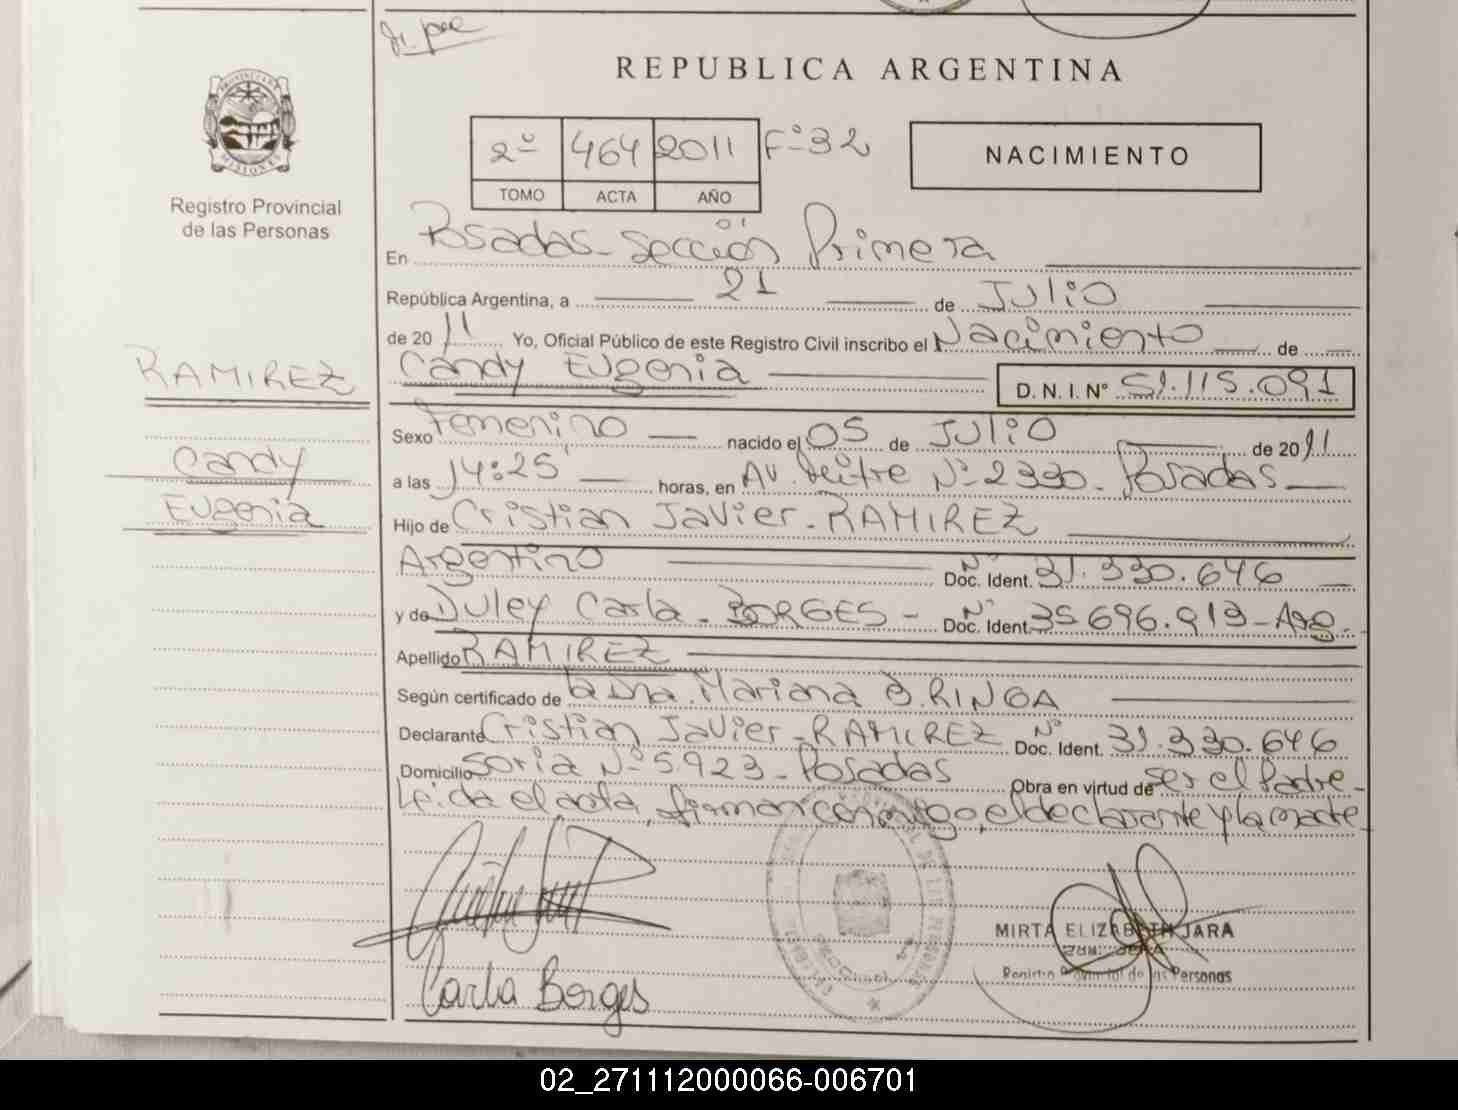 REPUBLICA ARGENTINA
2º 464 2011 Fº 32
TOMO ACTA AÑO
NACIMIENTO
PROVINCIA DE MISIONES
Registro Provincial
de las Personas
En Posadas - Sección Primera
República Argentina, a 21 de Julio
de 2011 Yo, Oficial Público de este Registro Civil inscribo el Nacimiento de
Candy Eugenia D.N.I.Nº 51.115.091
RAMIREZ
Candy
Eugenia
Sexo Femenino nacido el 05 de Julio de 2011
a las 14:25 horas, en Av. Mitre Nº 2330 - Posadas
Hijo de Cristian Javier - RAMIREZ
Argentino Nº Doc. Ident. 31.330.646
y de Duley Carla - BORGES - Nº Doc. Ident. 35.696.913 - Arg.
Apellido RAMIREZ
Según certificado de la Dra. Mariana B. RINGA
Declarante Cristian Javier - RAMIREZ Nº Doc. Ident. 31.330.646
Domicilio Soria Nº 5923 - Posadas Obra en virtud de ser el Padre -
Leida el acta, firman conmigo, el declarante y la madre
Carla Borges
MIRTA ELIZABETH JARA
Registro Provincial de las Personas
02_271112000066-006701